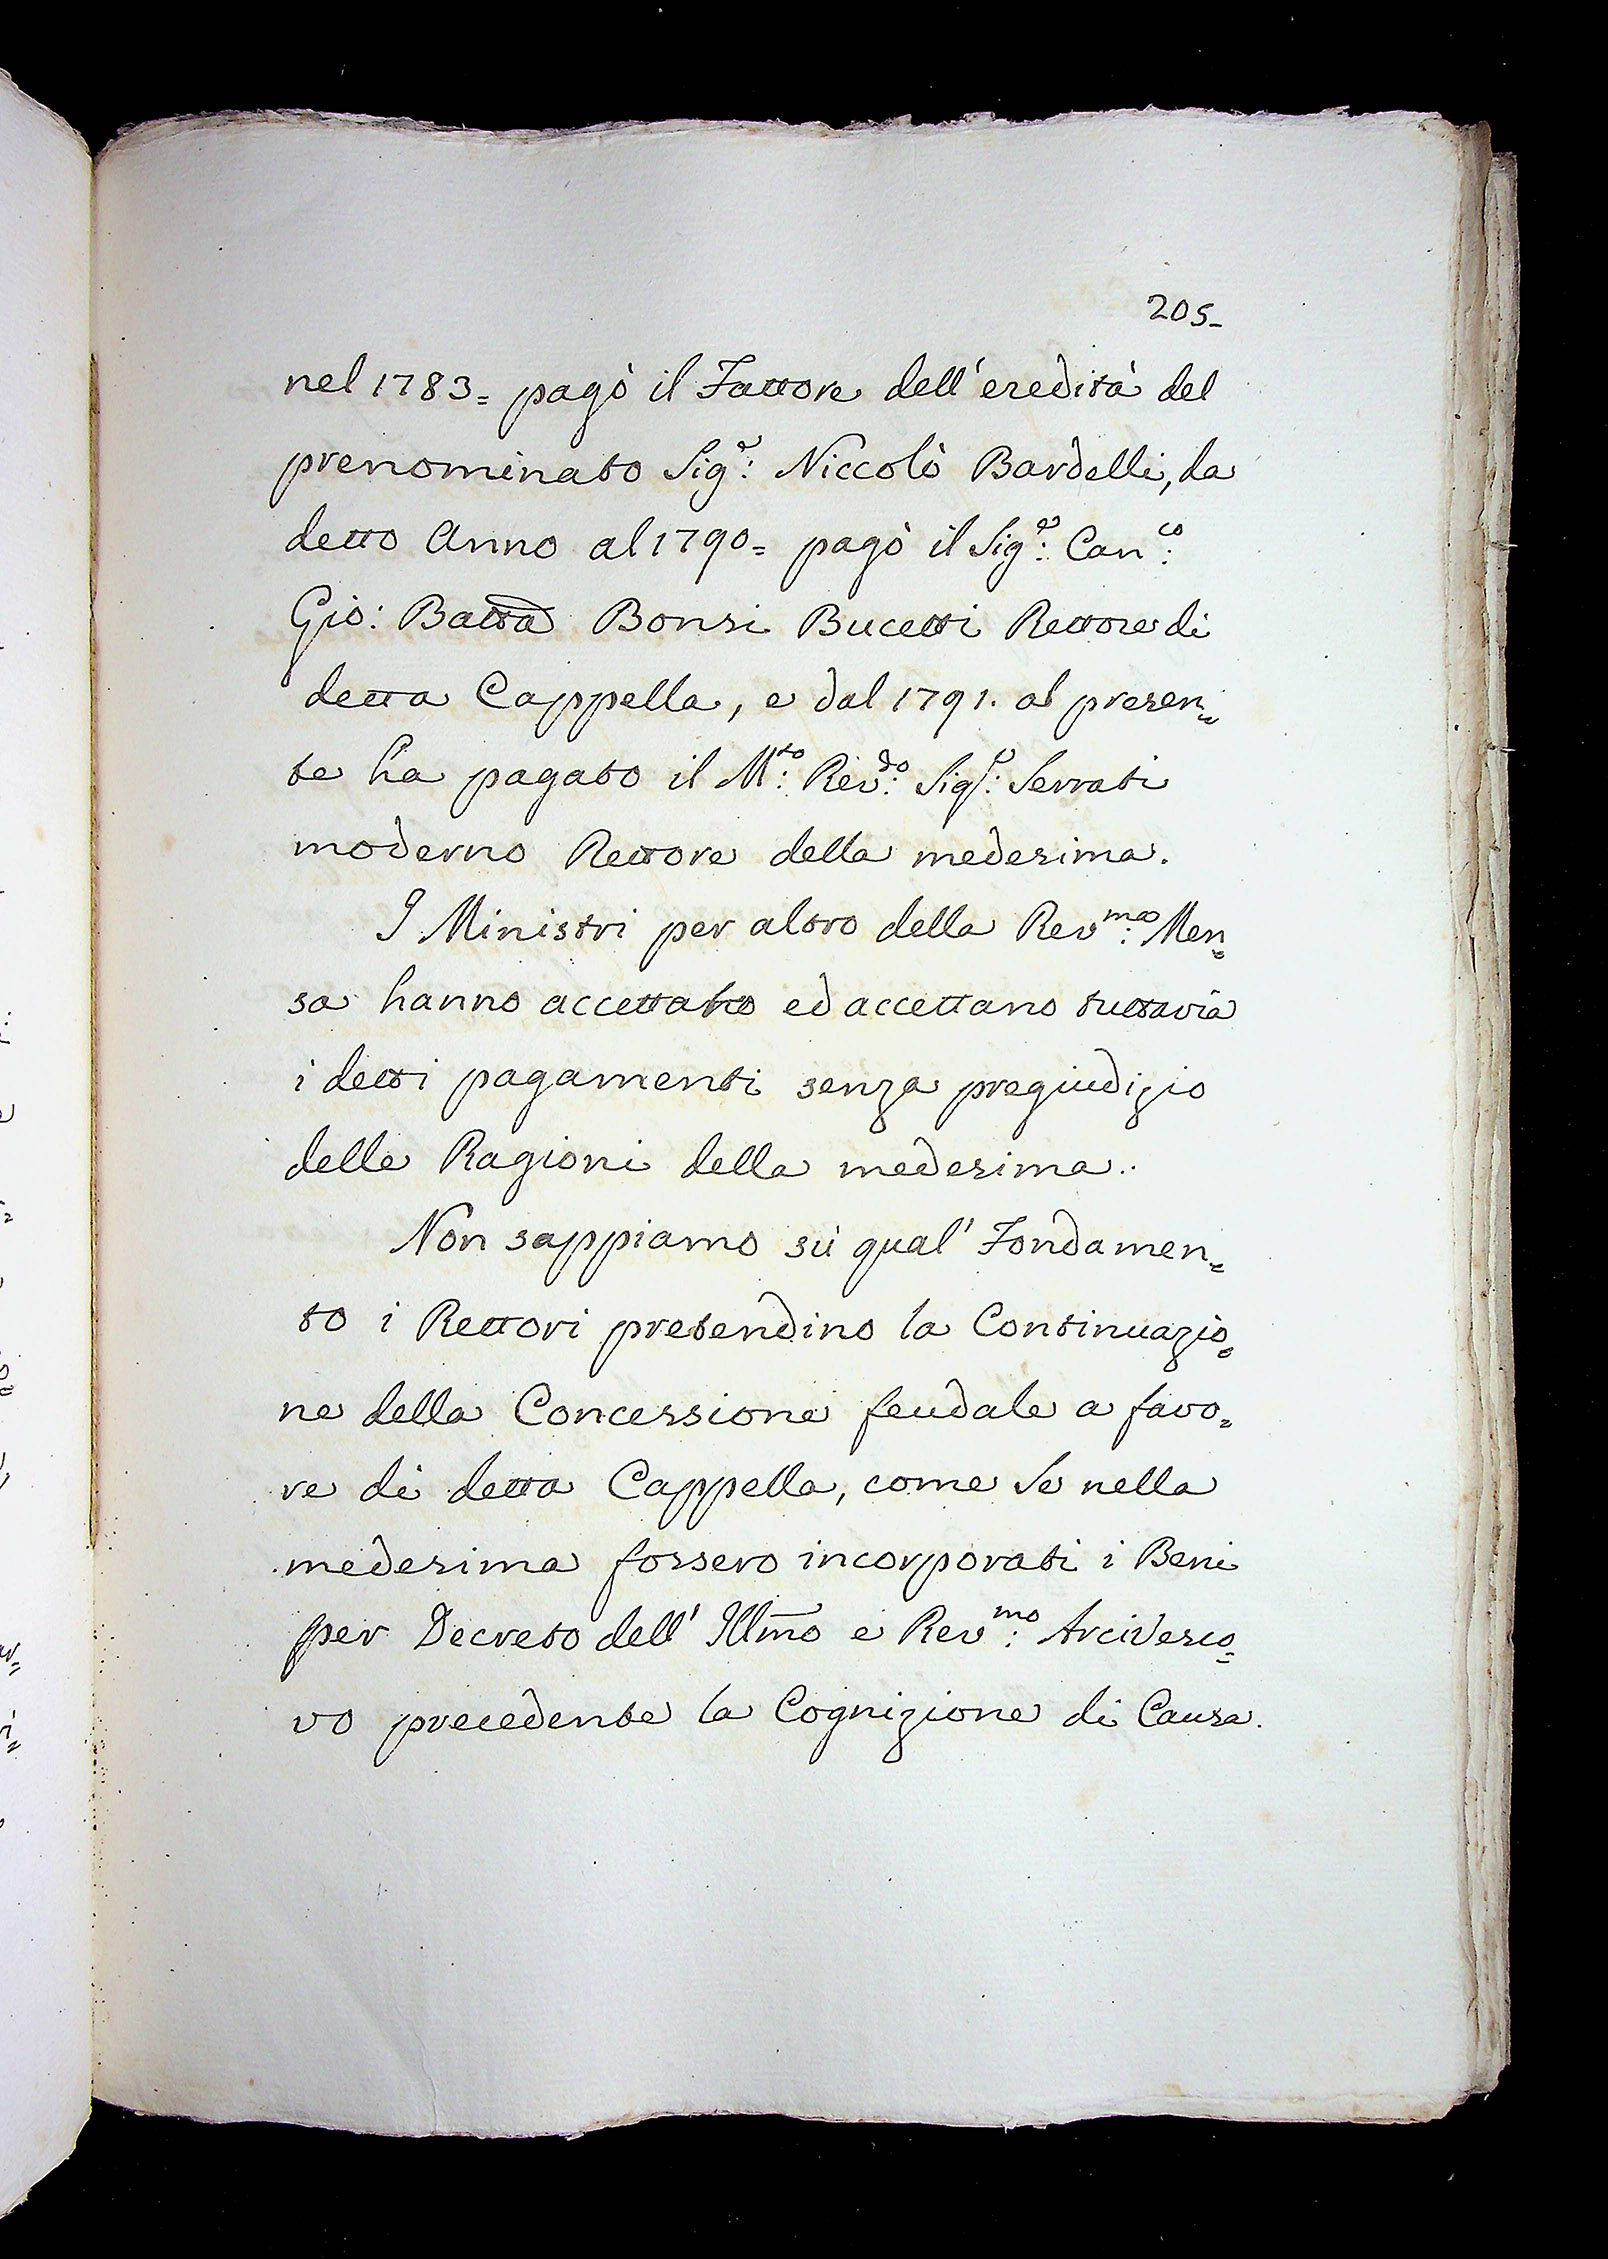 205-
nel 1783= pagò il Fattore dell'eredità del
prenominato Sig.r: Niccolò Bardelli, da
detto Anno al 1790= pagò il Sig.r: Can.co:
Gio: Batta Bonsi Bucetti Rettore di
detta Cappella, e dal 1791. al presen=
te ha pagato il M.to: Rev.do: Sig.r: Serrati
moderno Rettore della medesima.
I Ministri per altro della Rev.ma: Men=
sa hanno accettato ed accettano tuttavia
i detti pagamenti senza pregiudizio
delle Ragioni della medesima..
Non sappiamo sù qual' Fondamen=
to i Rettori pretendino la Continuazio=
ne della Concessione feudale a favo=
re di detta Cappella, come se nella
medesima fossero incorporati i Beni
per Decreto dell' Illmo e Rev.mo: Arcivesco=
vo precedente la Cognizione di Causa.